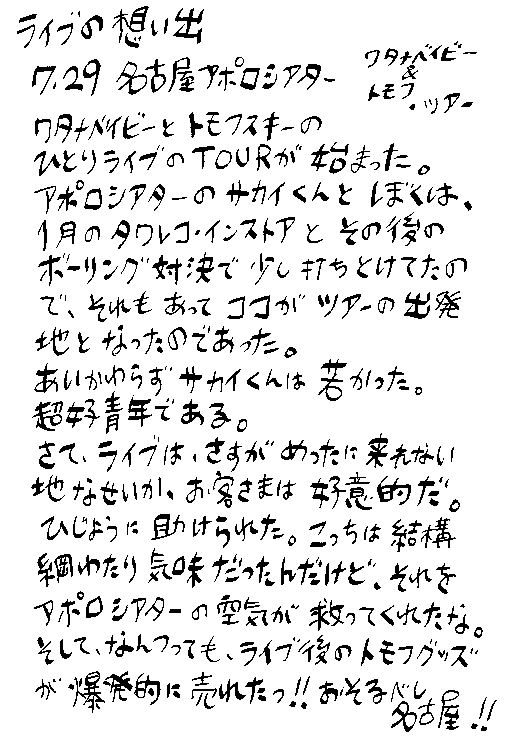 ライブの想い出
7.29 名古屋アポロシアター
ワタナベイビー
&
トモフ
・ツアー
ワタナベイビーとトモフスキーの
ひとりライブのTOURが始まった。
アポロシアターのサカイくんとぼくは、
1月のタワレコ・インストアとその後の
ボーリング対決で少し打ちとけてたの
で、それもあってココがツアーの出発
地となったのであった。
あいかわらずサカイくんは若かった。
超好青年である。
さて、ライブは、さすがめったに来れない
地なせいか、お客さまは好意的だ。
ひじょうに助けられた。こっちは結構
綱わたり気味だったんだけど、それを
アポロシアターの空気が救ってくれたな。
そして、なんつっても、ライブ後のトモフグッズ
が爆発的に売れたっ!!おそるべし
名古屋!!